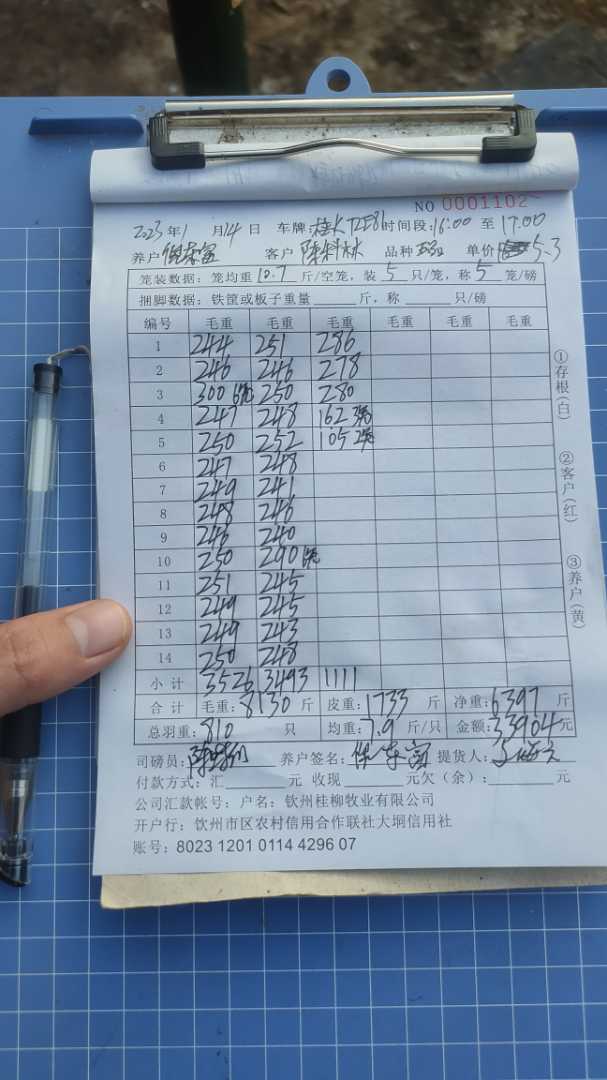 NO 0001102
2023年1月14日 车牌: 时间段:16:00 至 17:00
养户 客户 品种 单价 5.3
笼装数据: 笼均重10.7斤/空笼, 装5只/笼, 称5笼/磅
捆脚数据: 铁筐或板子重量____斤, 称____只/磅
编号 毛重 毛重 毛重 毛重 毛重 毛重
1 244 251 286
2 246 246 278
3 300 6笼 250 280
4 247 248 162 3笼
5 250 252 105 2笼
6 247 248
7 249 241
8 248 246
9 246 240
10 250 290 6笼
11 251 245
12 249 245
13 249 243
14 250 248
小计 3526 3493 1111
合计 毛重:8130斤 皮重:1733斤 净重:6397斤
总羽重:810只 均重:7.9斤/只 金额:33904元
司磅员: 养户签名: 提货人:
付款方式: 汇____元 收现____元欠(余):____元
公司汇款帐号: 户名: 钦州桂柳牧业有限公司
开户行: 钦州市区农村信用合作联社大垌信用社
账号: 8023 1201 0114 4296 07
①存根(白)
②客户(红)
③养户(黄)